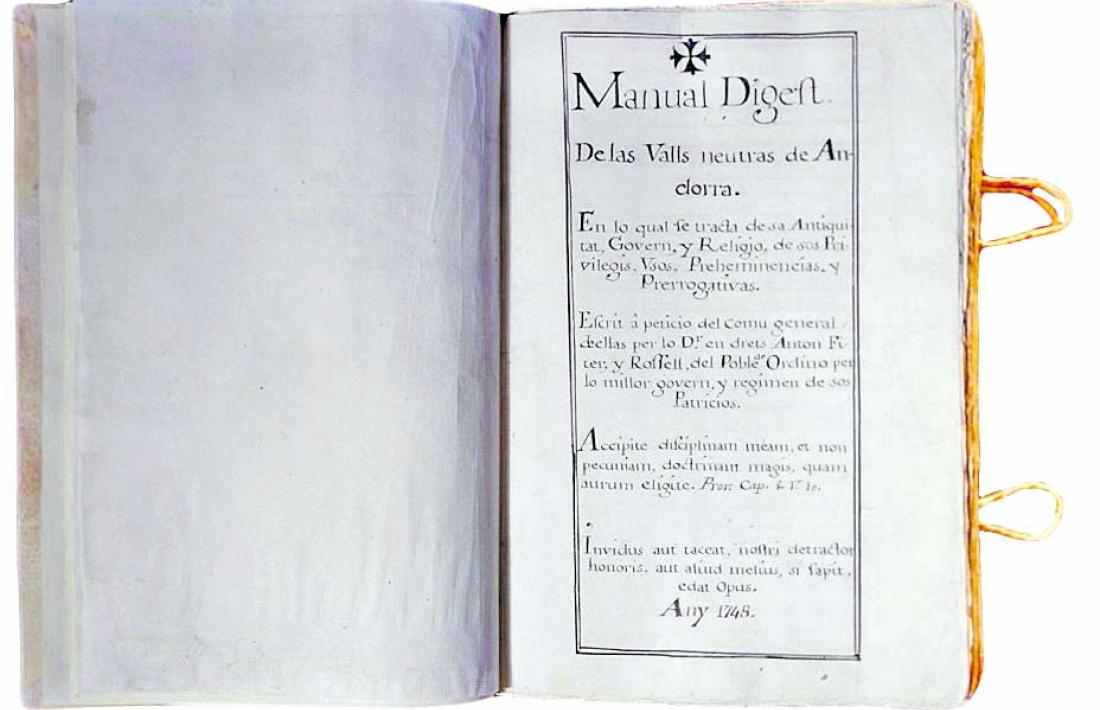 Manual Digest.
De las Valls neutras de An-
dorra.
En lo qual se tracta de sa Antiqui-
tat, Govern, y Religio, de sos Pri-
vilegis, Usos, Preheminencias, y
Prerrogativas.
Escrit á peticio del Comu general
dellas per lo Dr. en drets Anton Fi-
ter, y Rossell, del Poble de Ordino per
lo millor govern, y regimen de sos
Patricios.
Accipite disciplinam meam, et non
pecuniam, doctrinam magis, quam
aurum eligite. Prov. Cap. 8. V. 10.
Invidus aut taceat, nostri detractor
honoris, aut aliud melius, si sapit,
edat Opus.
Any 1748.